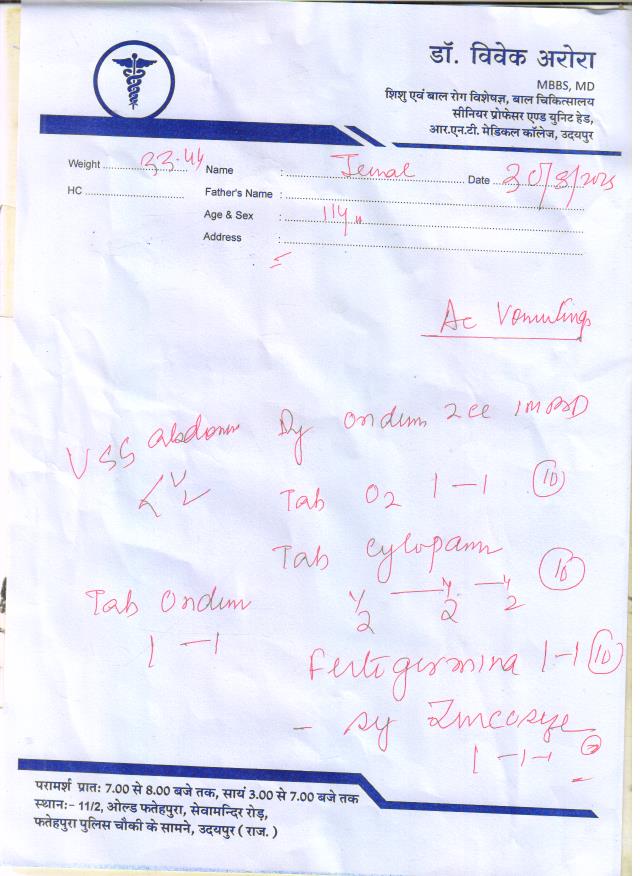 डॉ. विवेक अरोरा
MBBS, MD
शिशु एवं बाल रोग विशेषज्ञ, बाल चिकित्सालय
सीनियर प्रोफेसर एण्ड यूनिट हेड,
आर.एन.टी. मेडिकल कॉलेज, उदयपुर
Weight 33.44 Name : Date 30/8/2025
HC Father's Name :
Age & Sex : 11y
Address :
Ac Vomitings
abdomen ondem 2cc IM
Tab O2 1-1 (10)
Tab cyclopam (10)
1/2 - 1/2 - 1/2
Tab Ondem
1-1
1-1 (10)
- sy
1-1-1
परामर्श प्रातः 7.00 से 8.00 बजे तक, सायं 3.00 से 7.00 बजे तक
स्थान:- 11/2, ओल्ड फतेहपुरा, सेवामन्दिर रोड़,
फतेहपुरा पुलिस चौकी के सामने, उदयपुर ( राज. )